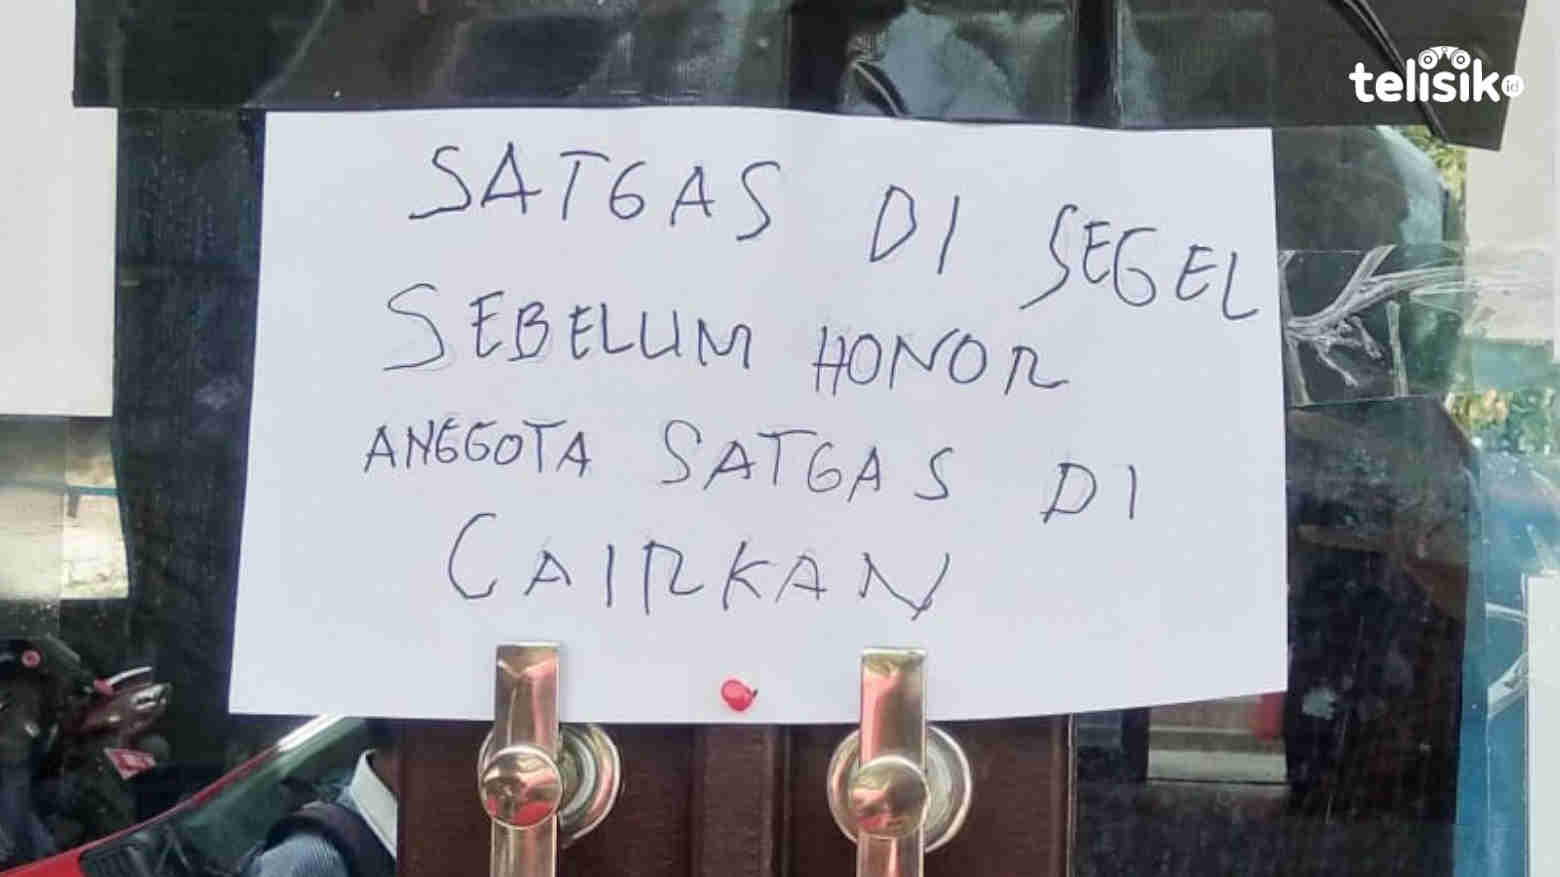 telisik.id
SATGAS DI SEGEL
SEBELUM HONOR
ANGGOTA SATGAS DI
CAIRKAN